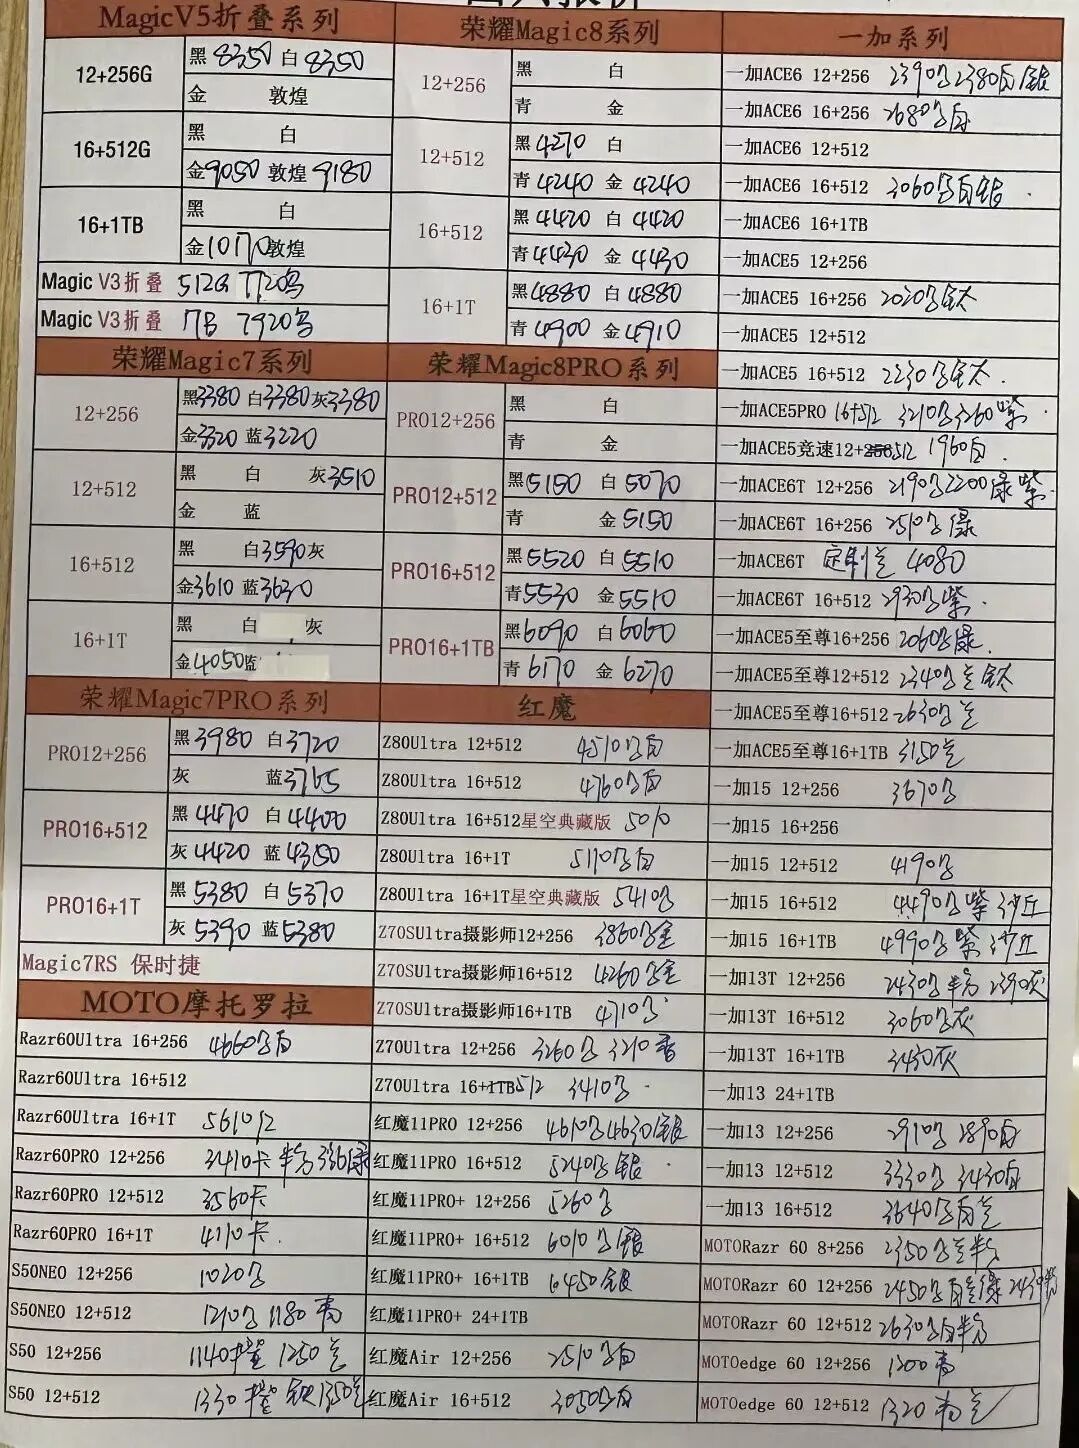 MagicV5折叠系列
12+256G
黑8350 白8350
金 敦煌
16+512G
黑 白
金9050 敦煌9180
16+1TB
黑 白
金10170敦煌
Magic V3折叠 512G 7720
Magic V3折叠 1TB 7920
荣耀Magic7系列
12+256
黑3380 白3380灰3380
金3320 蓝3220
12+512
黑 白 灰3510
金 蓝
16+512
黑 白3590灰
金3610 蓝3630
16+1T
黑 白 灰
金4050蓝
荣耀Magic7PRO系列
PRO12+256
黑3980 白3720
灰 蓝3765
PRO16+512
黑4470 白4400
灰4420 蓝4350
PRO16+1T
黑5380 白5370
灰5390 蓝5380
Magic7RS 保时捷
MOTO摩托罗拉
Razr60Ultra 16+256 4660 白
Razr60Ultra 16+512
Razr60Ultra 16+1T 5610红
Razr60PRO 12+256 3410卡
Razr60PRO 12+512 3560卡
Razr60PRO 16+1T 4110卡
S50NEO 12+256 1020
S50NEO 12+512 1210 1180
S50 12+256 1140 1250兰
S50 12+512 1330
荣耀Magic8系列
12+256
黑 白
青 金
12+512
黑4270 白
青4240 金4240
16+512
黑4420 白4420
青4430 金4430
16+1T
黑4880 白4880
青4900 金4910
荣耀Magic8PRO系列
PRO12+256
黑 白
青 金
PRO12+512
黑5150 白5070
青 金5150
PRO16+512
黑5520 白5510
青5530 金5510
PRO16+1TB
黑6090 白6060
青6170 金6270
红魔
Z80Ultra 12+512 4510 白
Z80Ultra 16+512 4760 白
Z80Ultra 16+512星空典藏版 5010
Z80Ultra 16+1T 5110 白
Z80Ultra 16+1T星空典藏版 5410
Z70SUltra摄影师12+256 3860 金
Z70SUltra摄影师16+512 4260 金
Z70SUltra摄影师16+1TB 4710
Z70Ultra 12+256 3260 3210
Z70Ultra 16+1TB512 3410
红魔11PRO 12+256 4610 4630银
红魔11PRO 16+512 5240 银
红魔11PRO+ 12+256 5260
红魔11PRO+ 16+512 6010 银
红魔11PRO+ 16+1TB 6450银
红魔11PRO+ 24+1TB
红魔Air 12+256 2510 白
红魔Air 16+512 3050 白
一加系列
一加ACE6 12+256 2390 2380白银
一加ACE6 16+256 2680 白
一加ACE6 12+512
一加ACE6 16+512 3060 白银
一加ACE6 16+1TB
一加ACE5 12+256
一加ACE5 16+256 2020 钛
一加ACE5 12+512
一加ACE5 16+512 2230 钛
一加ACE5PRO 16+512 3210 3260紫
一加ACE5竞速12+256512 1960白
一加ACE6T 12+256 2190 2200绿紫
一加ACE6T 16+256 2510 绿
一加ACE6T 定制兰 4080
一加ACE6T 16+512 2930 紫
一加ACE5至尊16+256 2060 绿
一加ACE5至尊12+512 2340 兰钛
一加ACE5至尊16+512 2630 兰
一加ACE5至尊16+1TB 3150兰
一加15 12+256 3670
一加15 16+256
一加15 12+512 4190
一加15 16+512 4490 紫 沙丘
一加15 16+1TB 4990 紫 沙丘
一加13T 12+256 2430 粉 2390灰
一加13T 16+512 3060 灰
一加13T 16+1TB 3430灰
一加13 24+1TB
一加13 12+256 2910 2890白
一加13 12+512 3330 3430白
一加13 16+512 3640 白兰
MOTORazr 60 8+256 2350 兰粉
MOTORazr 60 12+256 2450 白兰绿
MOTORazr 60 12+512 2630 白粉
MOTOedge 60 12+256 1200
MOTOedge 60 12+512 1320 兰